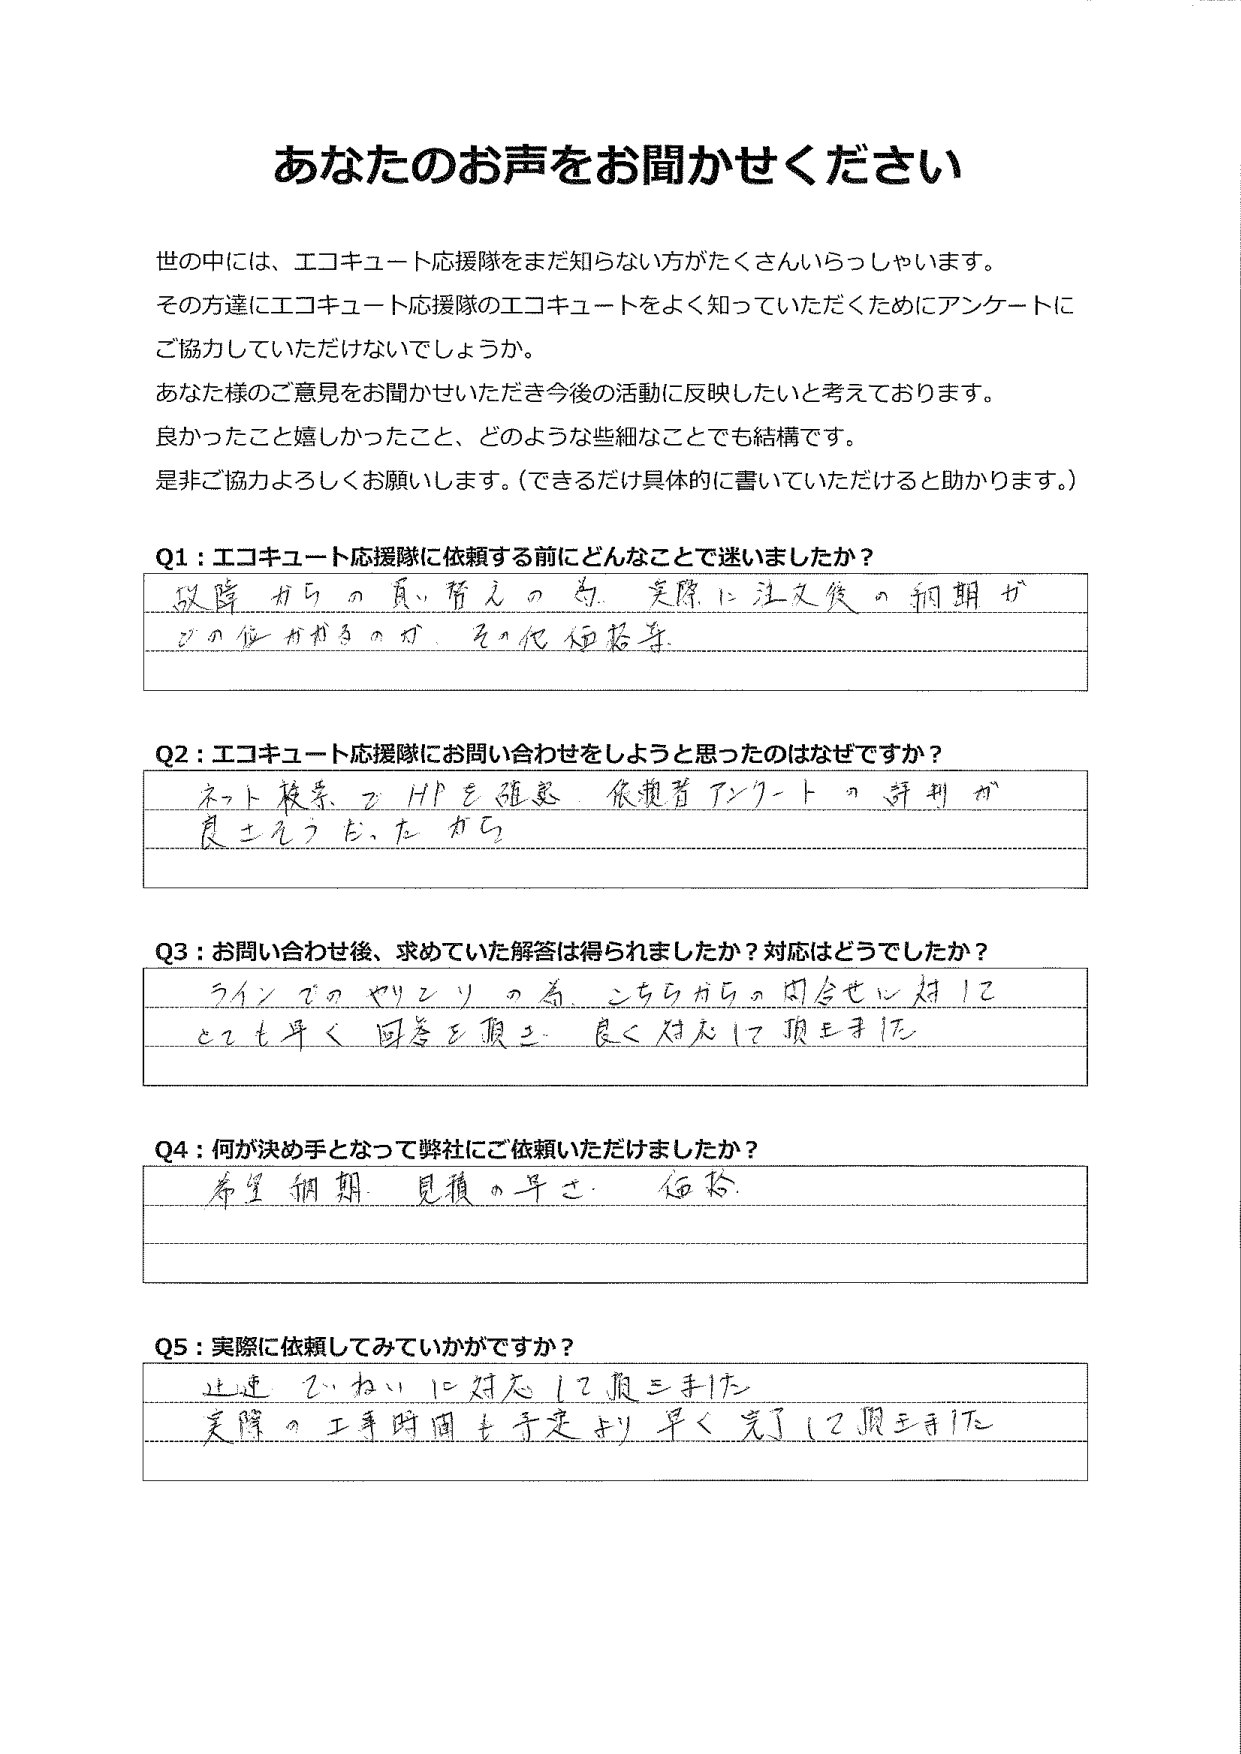 あなたのお声をお聞かせください
世の中には、エコキュート応援隊をまだ知らない方がたくさんいらっしゃいます。
その方達にエコキュート応援隊のエコキュートをよく知っていただくためにアンケートに
ご協力していただけないでしょうか。
あなた様のご意見をお聞かせいただき今後の活動に反映したいと考えております。
良かったこと嬉しかったこと、どのような些細なことでも結構です。
是非ご協力よろしくお願いします。（できるだけ具体的に書いていただけると助かります。）
Q1：エコキュート応援隊に依頼する前にどんなことで迷いましたか？
故障からの買い替えの為、実際に注文後の納期が
どの位かかるのか、その他価格等
Q2：エコキュート応援隊にお問い合わせをしようと思ったのはなぜですか？
ネット検索でHPを確認 依頼者アンケートの評判が
良さそうだったから
Q3：お問い合わせ後、求めていた解答は得られましたか？対応はどうでしたか？
ラインでのやりとりの為、こちらからの問合せに対して
とても早く回答を頂き 良く対応して頂きました
Q4：何が決め手となって弊社にご依頼いただけましたか？
希望納期 見積の早さ 価格
Q5：実際に依頼してみていかがですか？
迅速ていねいに対応して頂きました
実際の工事時間も予定より早く完了して頂きました